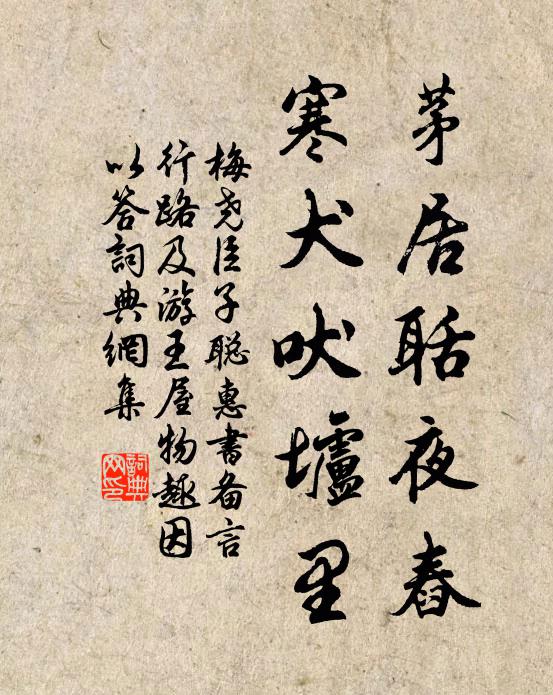 茅居聒夜舂
寒犬吠墟里
梅尧臣子聪惠書备言
行路及游王屋物趣因
以答詞典網集
詞典
网印